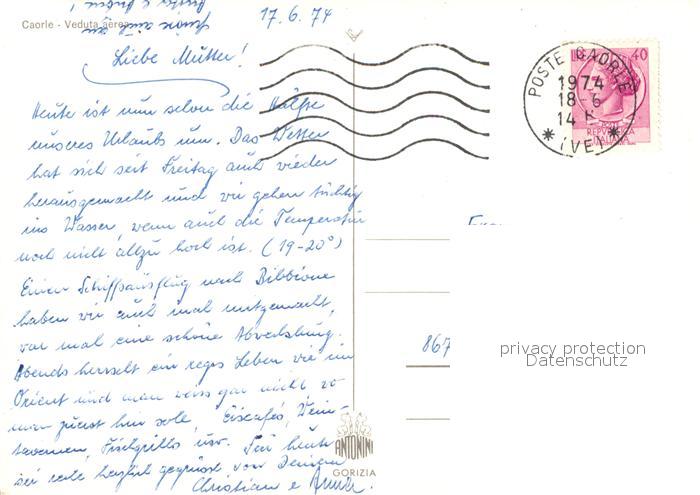 Caorle - Veduta aerea
17. 6. 74
Liebe Mutter!
Heute ist nun schon die Hälfte
unseres Urlaubs um. Das Wetter
hat sich seit Freitag auch wieder
herausgemacht und wir gehen tüchtig
ins Wasser, wenn auch die Temperatur
noch nicht allzu hoch ist. (19-20°)
Einen Schiffsausflug nach Bibbione
haben wir auch mal mitgemacht,
war mal eine schöne Abwechslung.
Abends herrscht ein reges Leben wie im
Orient und man weiss gar nicht wo
man zuerst hin soll, Eiscafés, Wein-
tavernen, Fischgrills usw. Für heute
sei recht herzlich gegrüsst von Deinem
Christian e
POSTE CAORLE
1974
18-6
14
(VE)
40
REPVBBLICA
ITALIANA
867
privacy protection
Datenschutz
ANTONINI
GORIZIA